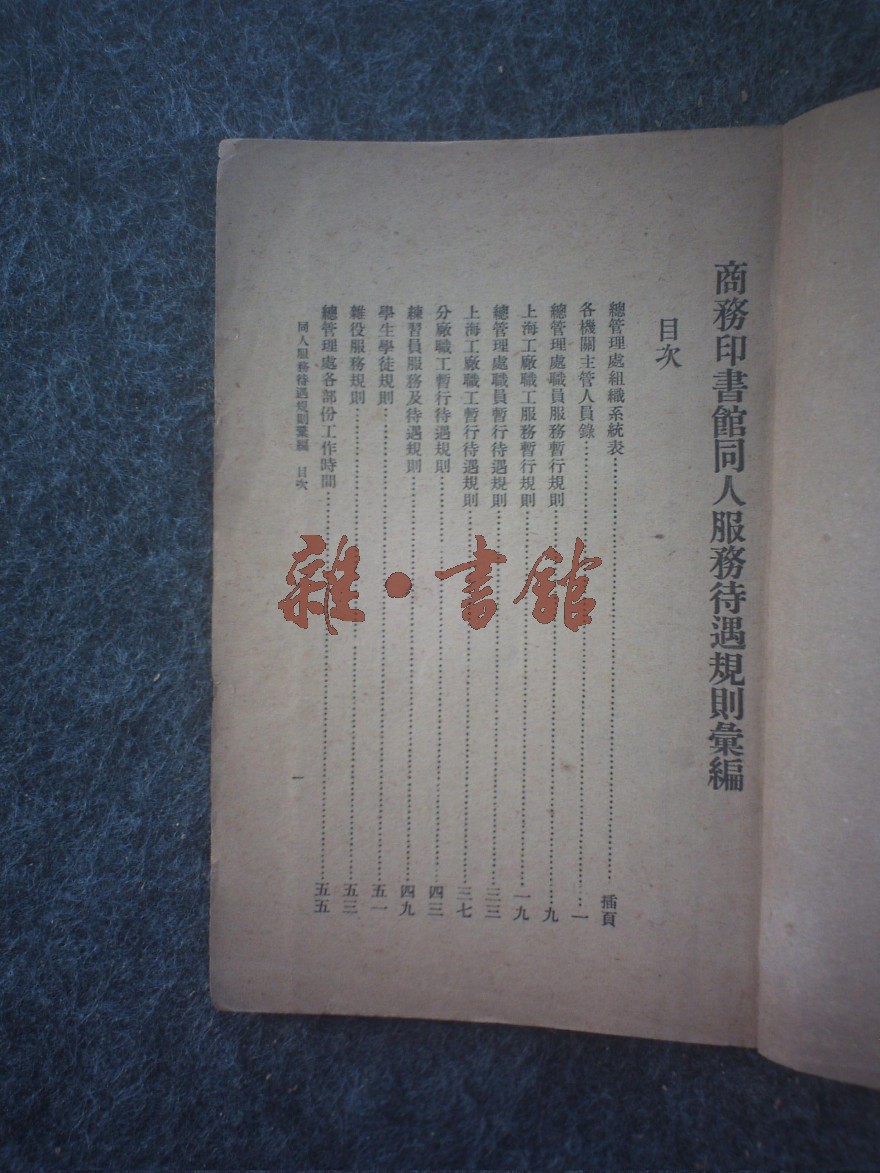 商務印書館同人服務待遇規則彙編
目次
總管理處組織系統表……插頁
各機關主管人員錄……一
總管理處職員服務暫行規則……九
上海工廠職工服務暫行規則……一九
總管理處職員暫行待遇規則……三三
上海工廠職工暫行待遇規則……三七
分廠職工暫行待遇規則……四三
練習員服務及待遇規則……四九
學生學徒規則……五一
雜役服務規則……五三
總管理處各部份工作時間……五五
同人服務待遇規則彙編 目次
一
雜·書館